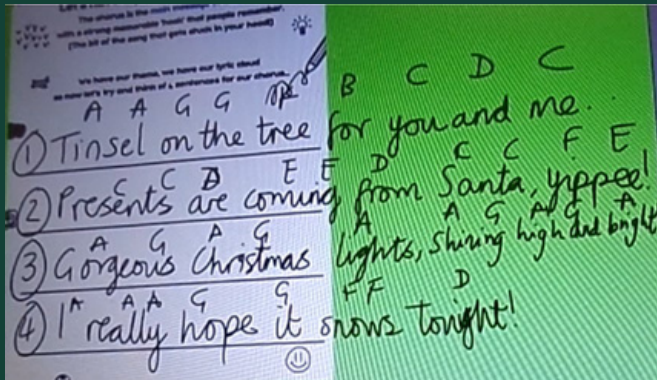 The chorus is the main message
with a strong memorable 'hook' that people remember.
(The bit of the song that gets stuck in your head)
We have our theme, we have our lyric cloud
so now let's try and think of 4 sentences for our chorus.
A A G G B C D C
① Tinsel on the tree for you and me.
C C D E E D C C F E
② Presents are coming from Santa, yippee!
A G A G A A G A G A
③ Gorgeous Christmas lights, shining high and bright
A A A G G F F D
④ I really hope it snows tonight!